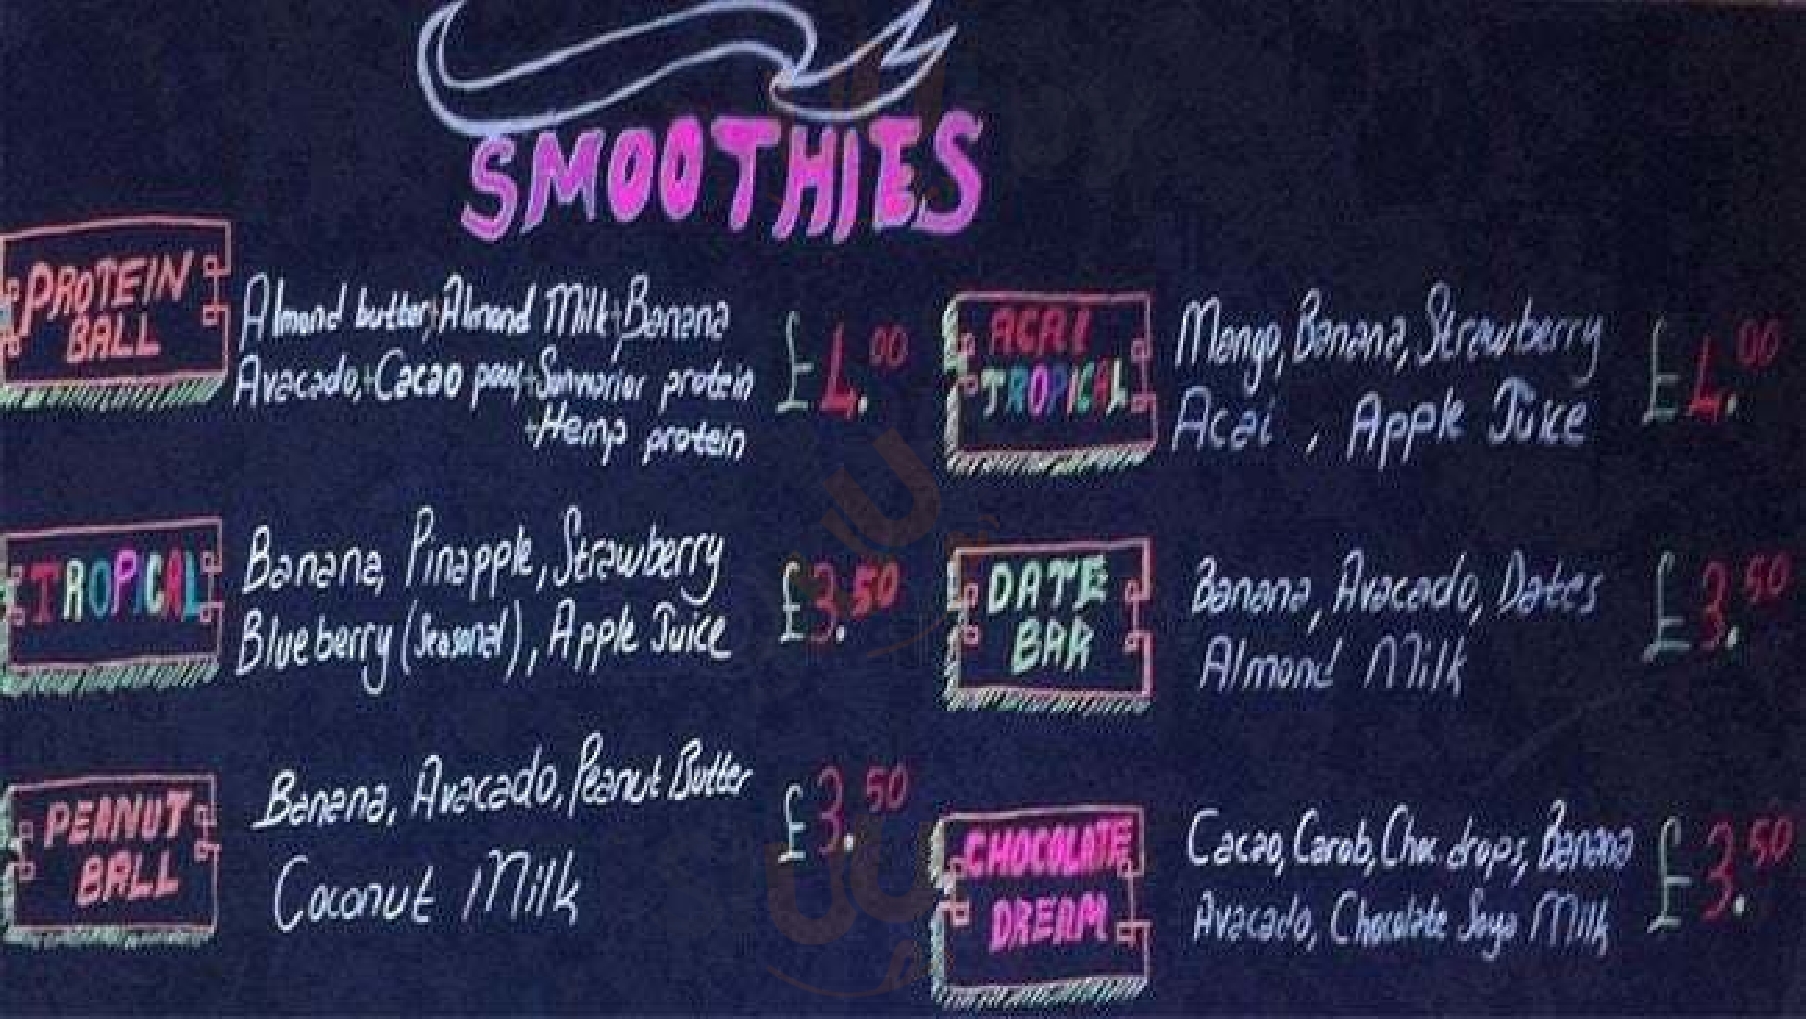 SMOOTHIES
PROTEIN
BALL
Almond butter+Almond Milk+Banana
Avacado,+Cacao pow+Sunwarior protein
+Hemp protein
£4.00
TROPICAL
Banana, Pinapple, Strawberry
Blueberry (Seasonal), Apple Juice
£3.50
PEANUT
BALL
Banana, Avacado, Peanut Butter
Coconut Milk
£3.50
ACAI
TROPICAL
Mango, Banana, Strawberry
Acai , Apple Juice
£4.00
DATE
BAR
Banana, Avacado, Dates
Almond Milk
£3.50
CHOCOLATE
DREAM
Cacao, Carob, Choc drops, Banana
Avacado, Chocolate Soya Milk
£3.50